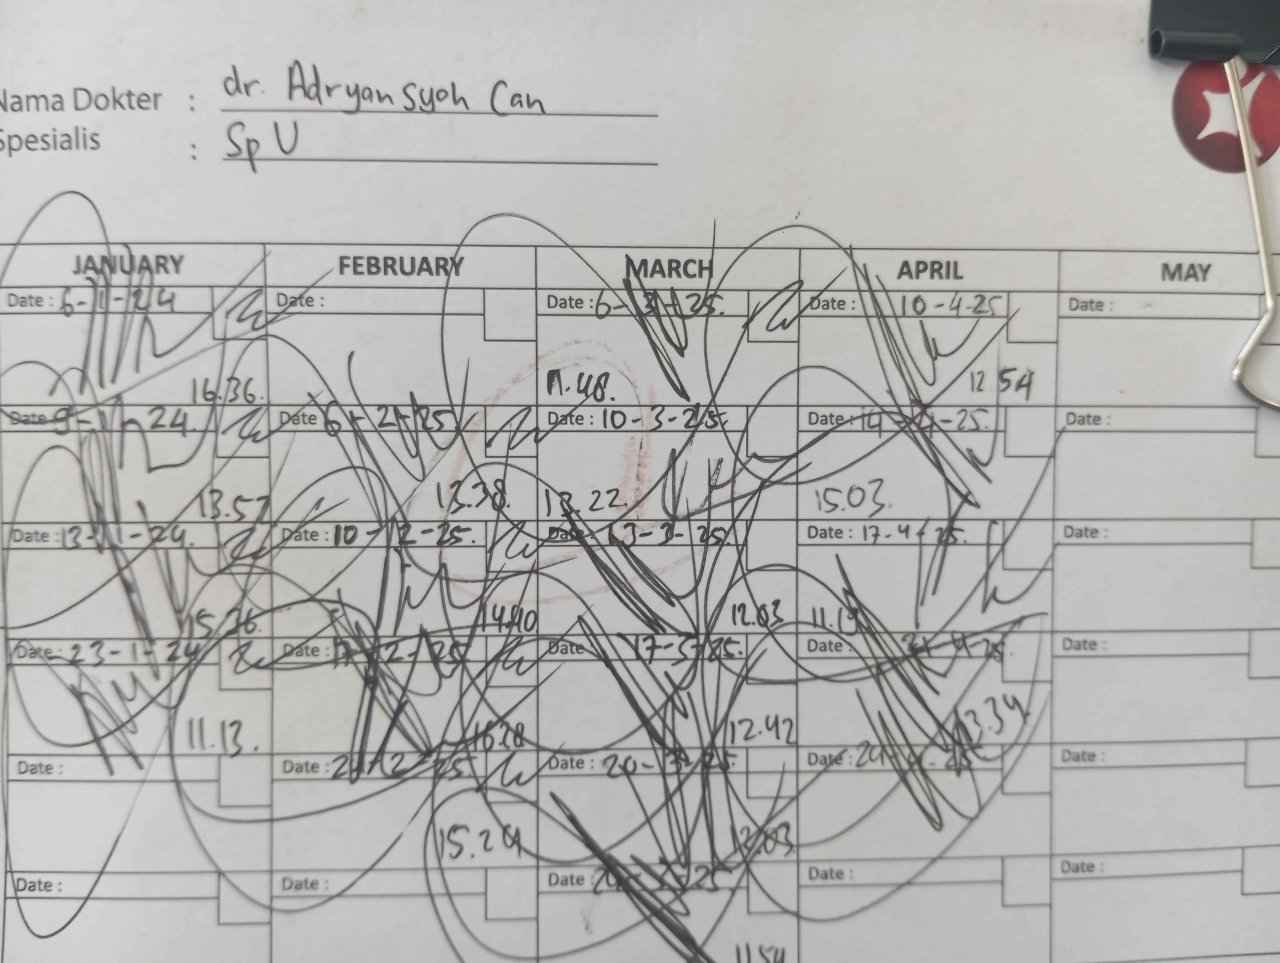 Nama Dokter : dr. Adryansyah Can
Spesialis : Sp U
JANUARY FEBRUARY MARCH APRIL MAY
Date : 6-1-24 Date : Date : 6-3-25. Date : 10-4-25 Date :
16.36. 11.48. 12 54
Date 9-1-24 Date 6-2-25 Date : 10-3-25. Date : 14-4-25. Date :
13.57 13.38. 13.22. 15.03.
Date : 13-1-24. Date : 10-2-25. Date : 13-3-25 Date : 17-4-25. Date :
15.36. 14.40 12.03 11.19
Date : 23-1-24 Date : 17-2-25 Date 17-3-25. Date : 21-4-25 Date :
11.13. 16.28 12.42 13.34.
Date : Date : 2 -2-25 Date : 20-3-25. Date : 24-4-25 Date :
15.29 12.03
Date : Date : Date : 24-3-25 Date : Date :
11.54